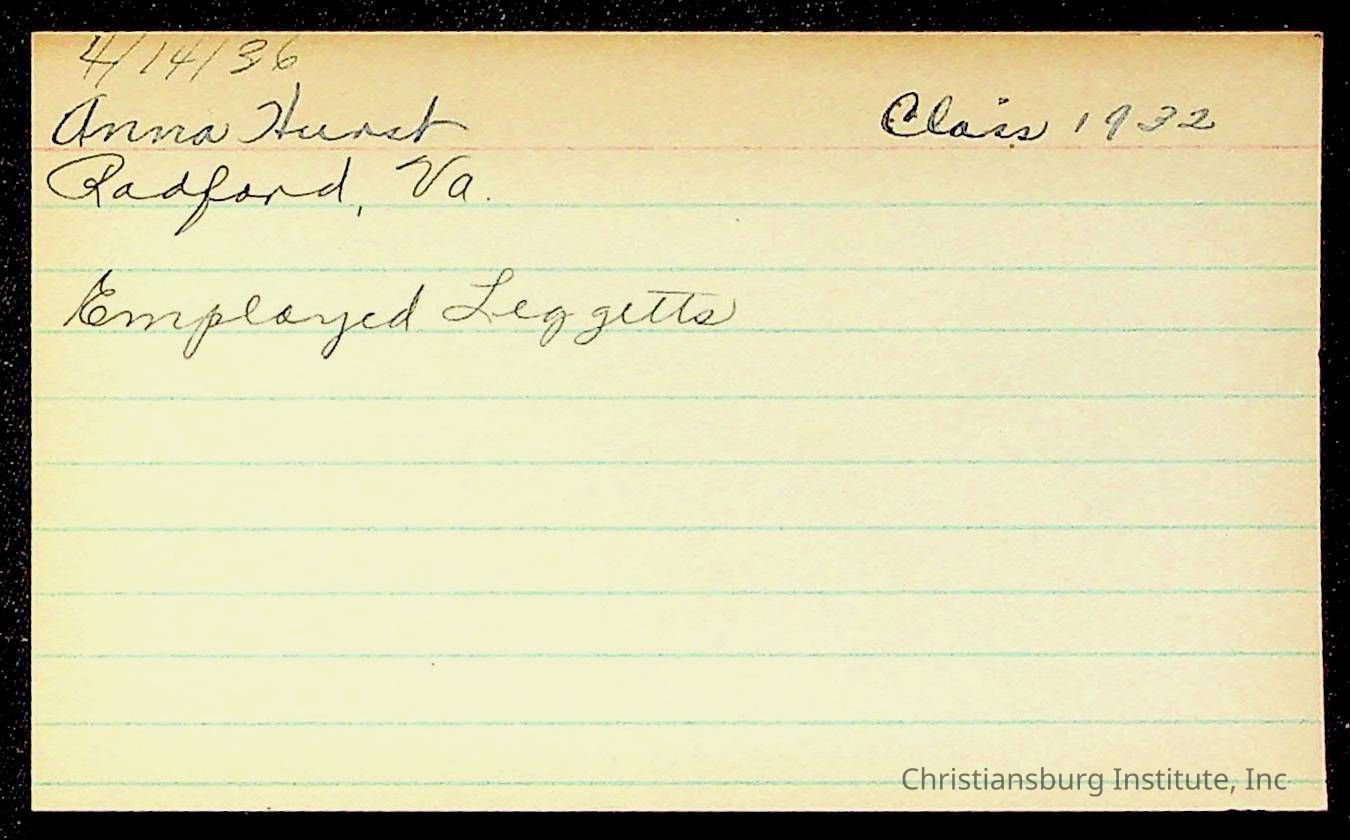 4/14/36
Anna Hurst Class 1932
Radford, Va.
Employed Leggetts
Christiansburg Institute, Inc